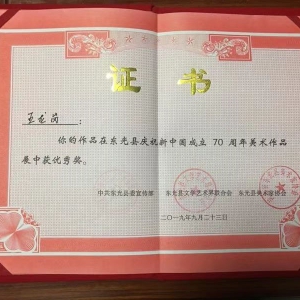 证书
王龙茵：
你的作品在东光县庆祝新中国成立 70 周年美术作品
展中获优秀奖。
中共东光县委宣传部 东光县文学艺术界联合会 东光县美术家协会
二〇一九年九月二十三日